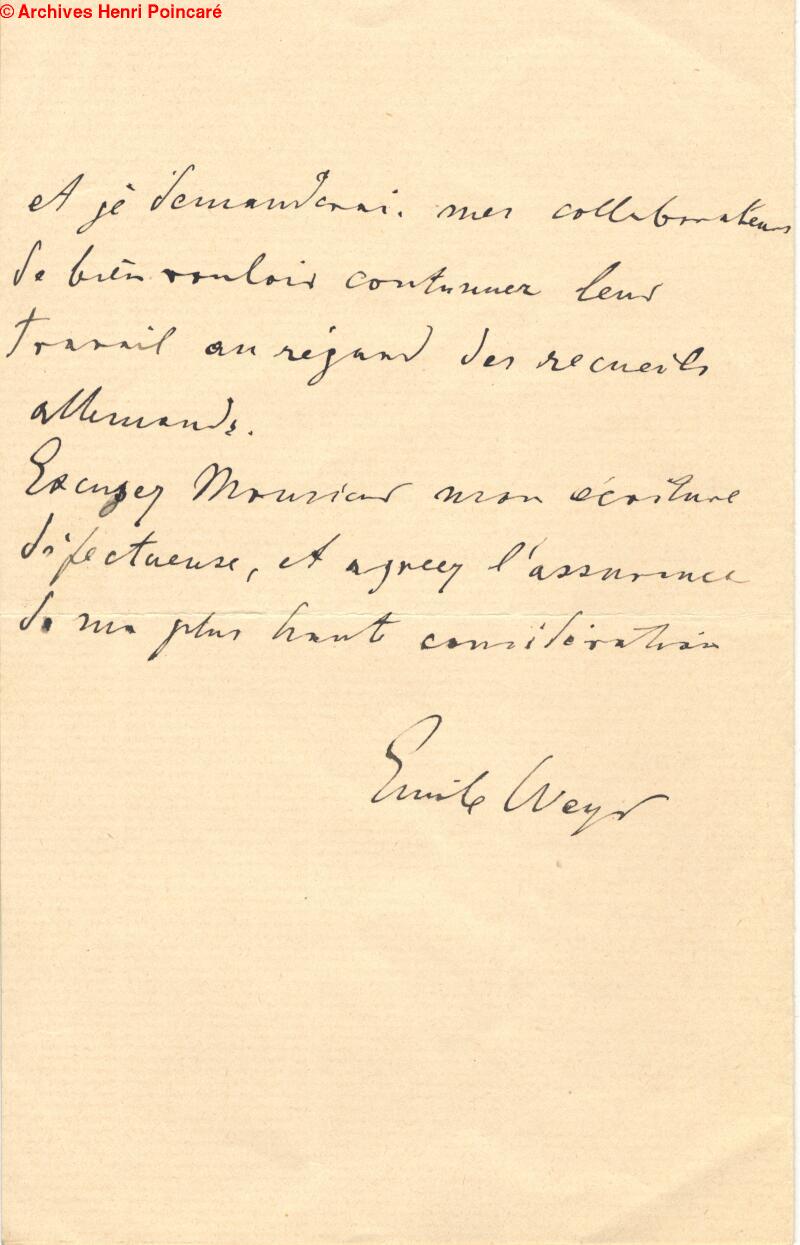 © Archives Henri Poincaré
et je demanderai. mes collaborateurs
de bien vouloir continuer leur
travail au régard des recueils
allemands.
Excusez Monsieur mon écriture
défectueuse, et agreez l'assurance
de ma plus haut considération
Emile Weyr